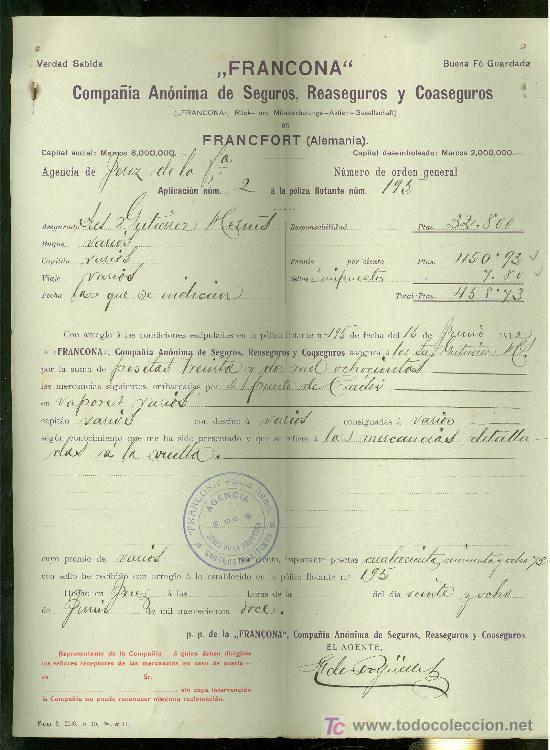 Verdad Sabida
Buena Fé Guardada
„FRANCONA“
Compañía Anónima de Seguros, Reaseguros y Coaseguros
(„FRANCONA“, Rück- und Mitversicherungs-Aktien-Gesellschaft)
en
FRANCFORT (Alemania).
Capital social: Marcos 8,000,000.—
Capital desembolsado: Marcos 2,000,000.—
Agencia de Jerez de la Fra
Número de orden general
Aplicación núm. 2 á la póliza flotante núm. 195
Asegurado Gutiérrez
Responsabilidad Ptas. 32.800
Buque varios
Capitán varios
Premio por ciento Ptas. 450.93
Viaje varios
Sellos impuestos 7.80
Fecha las que se indican
Total: Ptas. 458.73
Con arreglo á las condiciones estipuladas en la póliza flotante n.º 195 de fecha del 14 de Junio 1912
la «FRANCONA», Compañía Anónima de Seguros, Reaseguros y Coaseguros asegura á los
por la suma de pesetas treinta y dos mil ochocientas
las mercancías siguientes, embarcadas por el puerto de Cádiz
en vapores varios
capitán varios con destino á varios consignadas á varios
según conocimiento que me ha sido presentado y que se refiere á las mercancías detalla-
das a la vuelta.
FRANCONA
AGENCIA
DE
JEREZ DE LA FRONTERA
cuyo premio de varios por ciento, importante pesetas cuatrocientas cincuenta y ocho 73
con sello he recibido con arreglo á lo establecido en la póliza flotante n.º 195
Hecho en Jerez á las horas de la del dia veinte y ocho
de Junio de mil nuevecientos doce.
p. p. de la „FRANCONA“, Compañía Anónima de Seguros, Reaseguros y Coaseguros
EL AGENTE,
Representante de la Compañía á quien deben dirigirse
los señores receptores de las mercancías en caso de avería
es Sr.
sin cuya intervención
la Compañía no puede reconocer ninguna reclamación.
TC www.todocoleccion.net